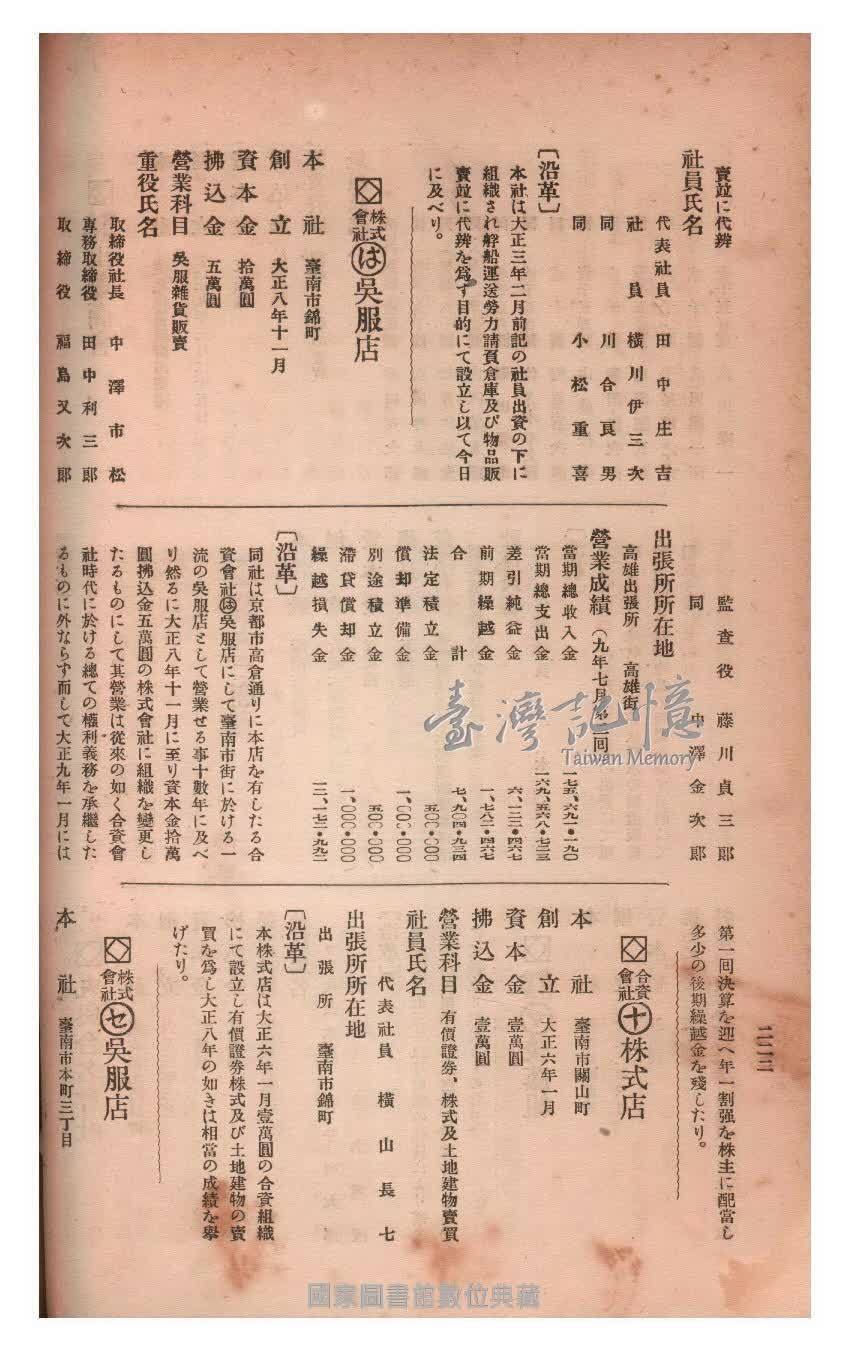 賣竝に代辨
社員氏名
代表社員 田中庄吉
社員 橫川伊三次
同 川合良男
同 小松重喜
〔沿革〕
本社は大正三年二月前記の社員出資の下に
組織され艀船運送勞力請負倉庫及び物品販
賣竝に代辨を爲す目的にて設立し以て今日
に及べり。
株式會社 は 吳服店
本社 臺南市錦町
創立 大正八年十一月
資本金 拾萬圓
拂込金 五萬圓
營業科目 吳服雜貨販賣
重役氏名
取締役社長 中澤市松
專務取締役 田中利三郎
取締役 福島又次郎
監査役 藤川貞三郎
同 中澤金次郎
出張所所在地
高雄出張所 高雄街
營業成績(九年七月第二回
當期總收入金 一七五、六九一・一九〇
當期總支出金 一六九、五六八・七二三
差引純益金 六、一二二・四六七
前期繰越金 一、七八二・四六七
合計 七、九〇四・九三四
法定積立金 五〇〇・〇〇〇
償却準備金 一、〇〇〇・〇〇〇
別途積立金 五〇〇・〇〇〇
滯貸償却金 一、〇〇〇・〇〇〇
繰越損失金 三、一七二・九九二
〔沿革〕
同社は京都市高倉通りに本店を有したる合
資會社は吳服店にして臺南市街に於ける一
流の吳服店として營業せる事十數年に及べ
り然るに大正八年十一月に至り資本金拾萬
圓拂込金五萬圓の株式會社に組織を變更し
たるものにして其營業は從來の如く合資會
社時代に於ける總ての權利義務を承繼した
るものに外ならず而して大正九年一月には
第一回決算を迎へ年一割强を株主に配當し
多少の後期繰越金を殘したり。
合資會社 十 株式店
本社 臺南市關山町
創立 大正六年一月
資本金 壹萬圓
拂込金 壹萬圓
營業科目 有價證券、株式及土地建物賣買
社員氏名
代表社員 橫山長七
出張所所在地
出張所 臺南市錦町
〔沿革〕
本株式店は大正六年一月壹萬圓の合資組織
にて設立し有價證券株式及び土地建物の賣
買を爲し大正八年の如きは相當の成績を擧
げたり。
株式會社 セ 吳服店
本社 臺南市本町三丁目
二二三
臺灣記憶
Taiwan Memory
國家圖書館數位典藏